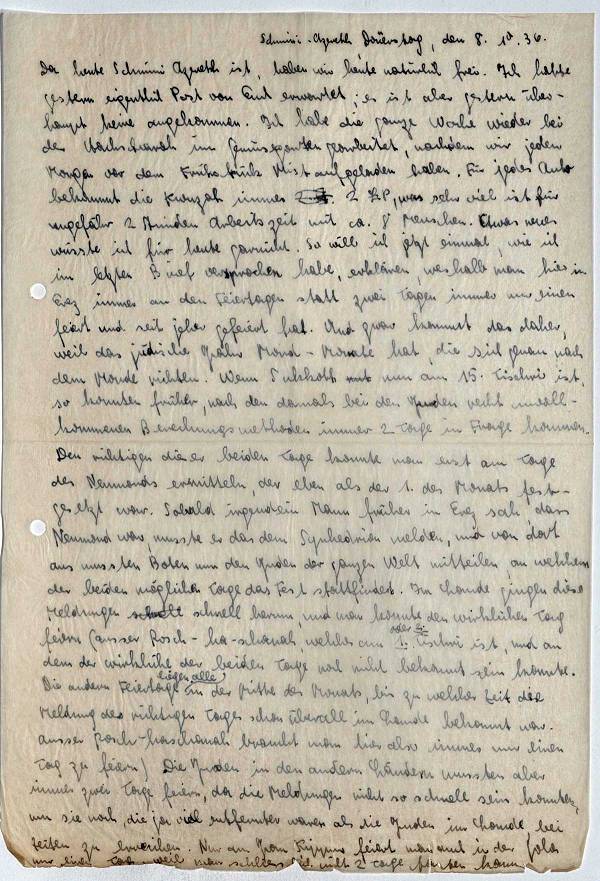 Schmini-Azereth, Donerstag, den 8. 10. 36.
Da heute Schmini Azereth ist, haben wir heute natürlich frei. Ich hatte
gestern eigentlich Post von Euch erwartet; es ist aber gestern über-
haupt keine angekommen. Ich habe die ganze Woche wieder bei
der im Gemüsegarten gearbeitet, nachdem wir jeden
Morgen vor dem Frühstück Mist aufgeladen haben. Für jedes Auto
bekommt die Kwuzah immer 2 ½ P, was sehr viel ist für
ungefähr 2 Stunden Arbeitszeit mit ca. 8 Menschen. Etwas neues
wüsste ich für heute garnicht. So will ich jetzt einmal, wie ich
im letzten Brief versprochen habe, erklären weshalb man hier in
Erez immer an den Feiertagen statt zwei Tagen immer nur einen
feiert und seit jeher gefeiert hat. Und zwar kommt das daher,
weil das jüdische Jahr Mond-Monate hat, die sich genau nach
dem Monde richten. Wenn Sukkoth nun am 15. Tischri ist,
so konnten früher, nach den damals bei den Juden recht unvoll-
kommenen Berechnungsmethoden immer 2 Tage in Frage kommen.
Den richtigen dieser beiden Tage konnte man erst am Tage
des Neumonds ermitteln, der eben als der 1. des Monats fest-
gesetzt war. Sobald irgendein Mann früher in Erez sah, dass
Neumond war, musste er das dem Synhedrion melden, und von dort
aus mussten Boten nun den Juden der ganzen Welt mitteilen, an welchem
der beiden möglichen Tage das Fest stattfindet. Im Lande gingen diese
Meldungen schnell herum, und man konnte den wirklichen Tag
feiern (ausser Rosch-ha-schanah, welches am 1. oder 2. Tischri ist, und an
dem der wirkliche der beiden Tage noch nicht bekannt sein konnte.
Die andern Feiertage liegen alle in der Mitte des Monats, bis zu welcher Zeit die
Meldung des richtigen Tages schon überall im Lande bekannt war.
ausser Rosch-haschanah braucht man hier also immer nur einen
Tag zu feiern) Die Juden in den andern Ländern mussten aber
immer zwei Tage feiern, da die Meldungen nicht so schnell sein konnten,
um sie noch, die ja viel entfernter waren als die Juden im Lande bei
zeiten zu erreichen. Nur am Jom Kippur feiert man auch in der Golah
nur einen Tag, weil man schliesslich nicht 2 Tage fasten kann